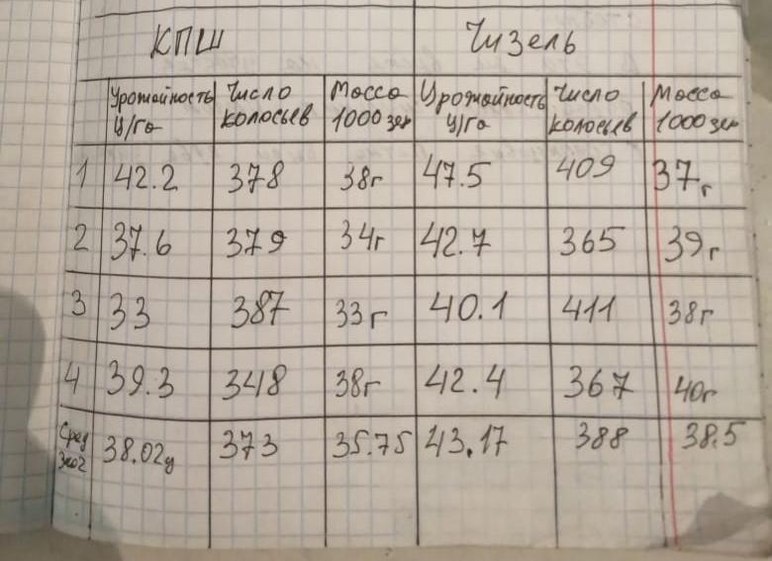 КПШ Чизель
Урожайность Число Масса Урожайность Число Масса
ц/га колосьев 1000 зер ц/га колосьев 1000 зер
1 42.2 378 38г 47.5 409 37г
2 37.6 379 34г 42.7 365 39г
3 33 387 33г 40.1 411 38г
4 39.3 348 38г 42.4 367 40г
Сред
знач 38.02ц 373 35.75 43.17 388 38.5